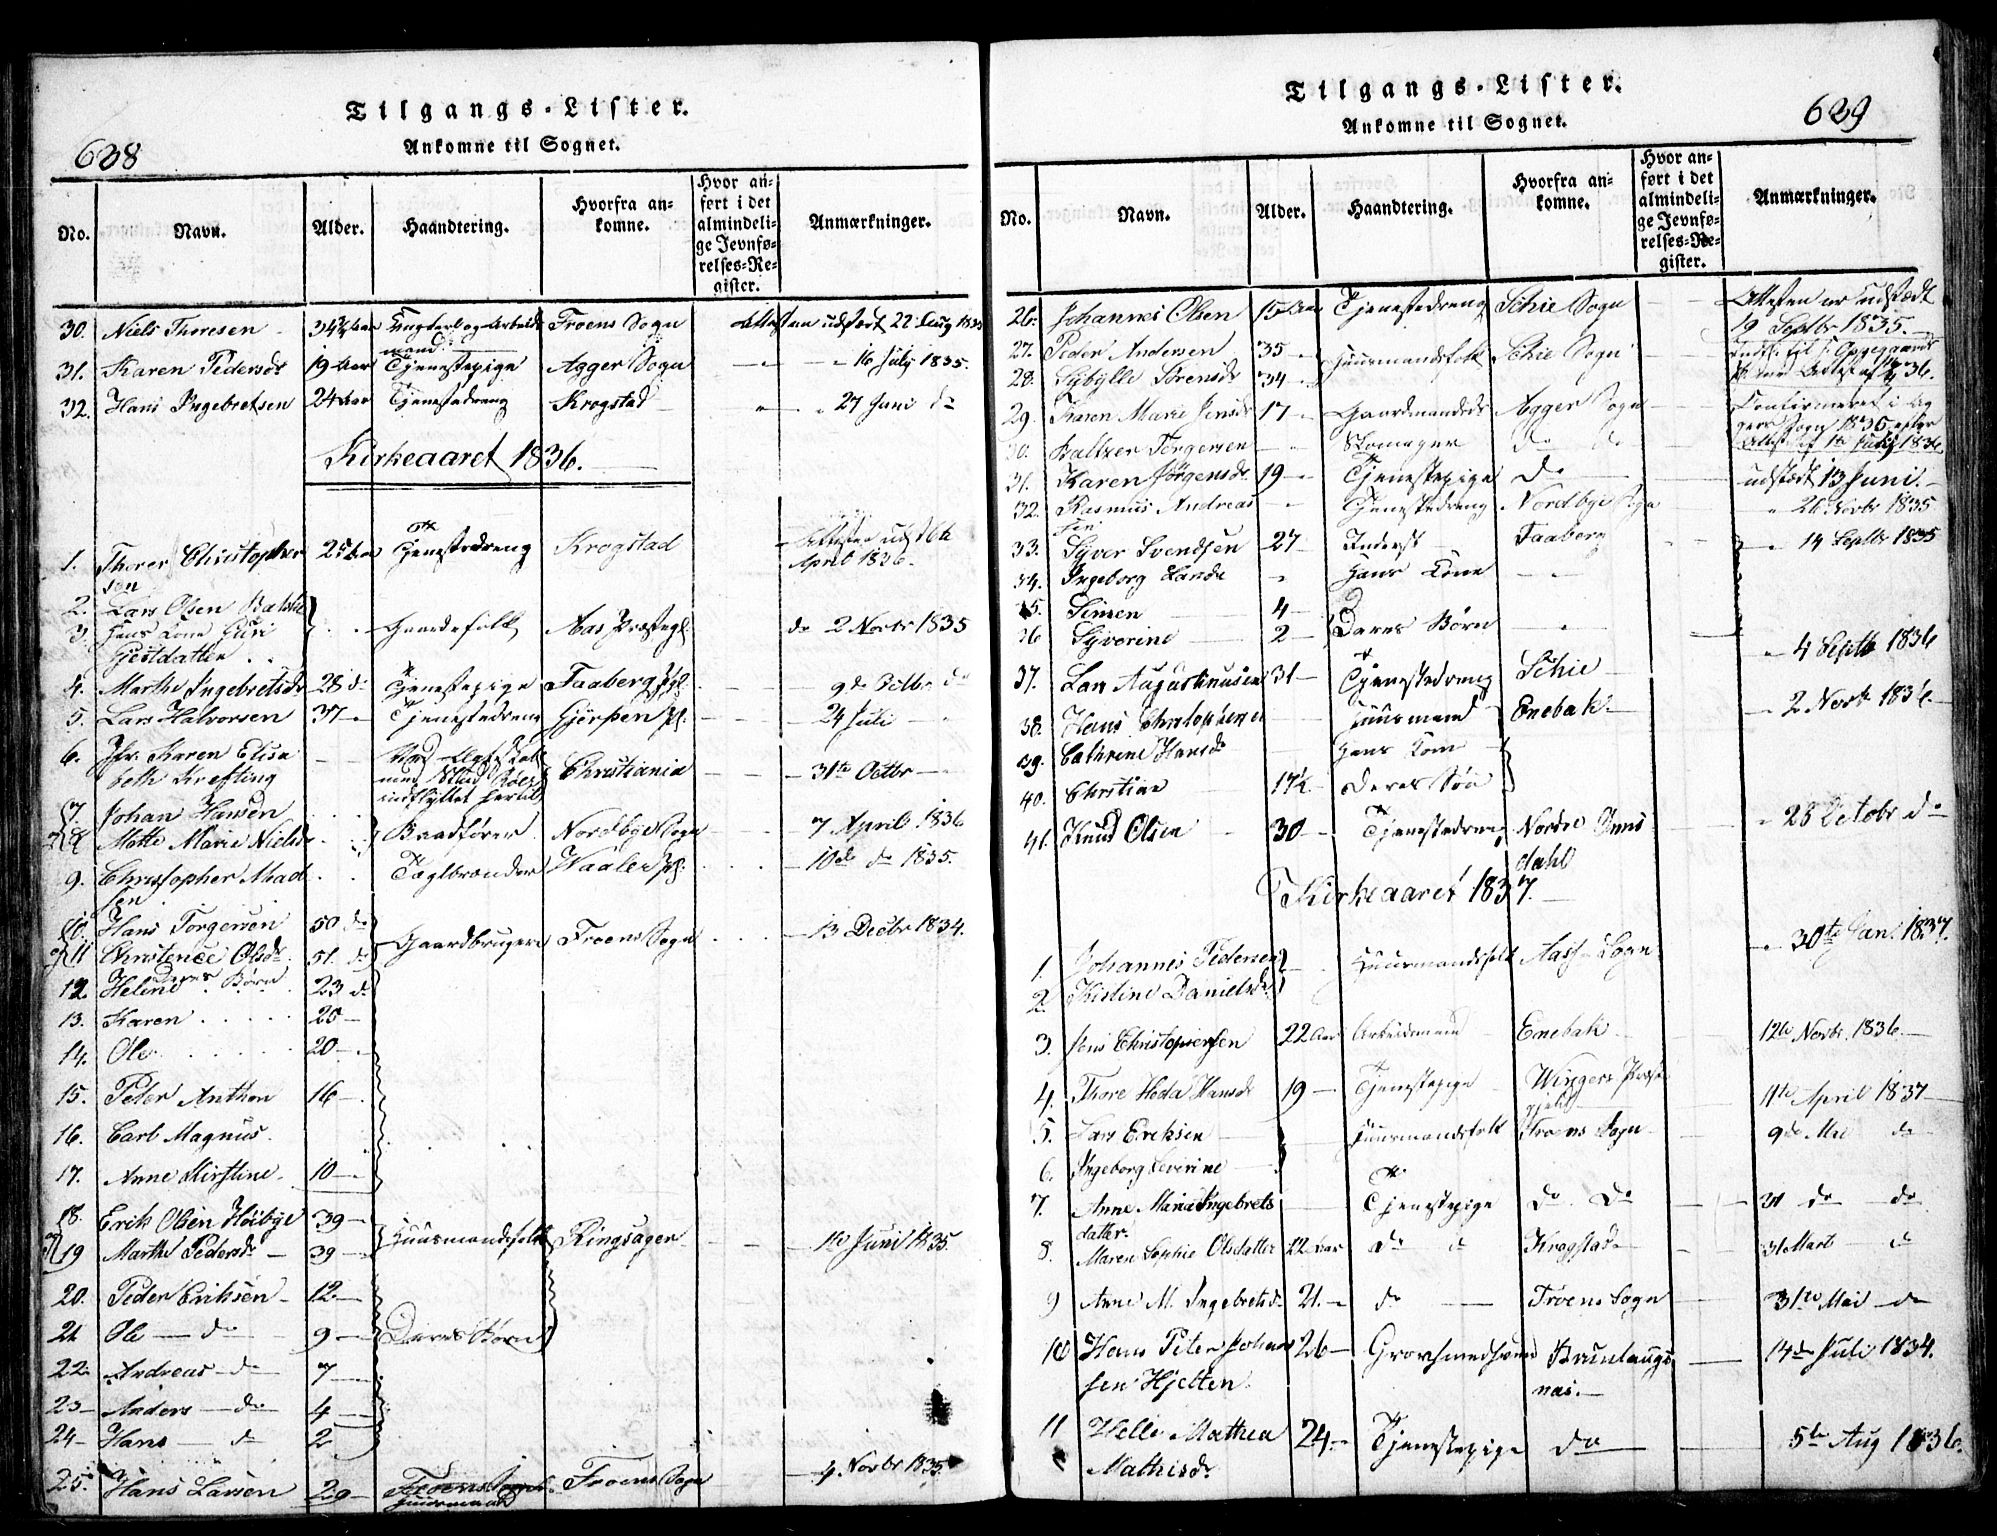 638
Tilgangs-Lister.
Ankomne til Sognet.
No. Navn. Alder. Haandtering. Hvorfra ankomne. Hvor anført i det almindelige Jevnførelses-Register. Anmærkninger.
30. Niels Thoresen 34½ Aar og Arbeids Froens Sogn Attesten udstædt 22 Aug 1835
mand.
31. Karen Pedersdr 19 Aar Tjenestepige Agger Sogn 16 July 1835.
32. Hans Ingebretsen 24 Aar Tjenestedreng Krogstad 27 Juni do
Kirkeaaret 1836.
1. Thorer Christopher 25 Aar Tjenestedreng Krogstad Attesten udst 6te
sen April 1836.
2. Lars Olsen
3. Hans Kone Guri Gaardefolk Aas Præstegl. do 2 Novbr 1835
Gjestdatter
4. Marthe Ingebretsdr 28 do Tjenestepige Faaberg Pgl. 9de Octbr do
5. Lars Halvorsen 37 Tjenestedreng Gjerpen Pgl. 24 Juli
6. Jfr. Karen Elisa
beth Krefting Christiania 31te Octbr
indflyttet hertil
7. Johan Hansen
8. Mette Marie Nielsdr Brødfører Nordbye Sogn 7 April 1836
9. Christopher Mad Teglbrænder Waaler Pgl. 10de do 1835.
sen
10. Hans Torgersen 50 do
11 Christence Olsdr 51. do Gaardbrugere Froens Sogn 13 Decbr 1834.
Deres Børn
12. Heline 23 do
13. Karen 25
14. Ole 20
15. Peter Anthon 16
16. Carl Magnus.
17. Anne Kirstine 10
18. Erik Olsen Høibye 39
19 Marthe Pedersdr 39 Huusmandsfolk Ringsager 1te Juni 1835.
20. Peder Eriksen 12
21 Ole do 9 Deres Børn
22. Andreas do 7
23 Anders do 4
24 Hans do 2
25. Hans Larsen 29 Froens Sogn Froens Sogn 4 Novbr 1835.
Huusmand
639
Tilgangs-Lister.
Ankomne til Sognet.
No. Navn. Alder. Haandtering. Hvorfra ankomne. Hvor anført i det almindelige Jevnførelses-Register. Anmærkninger.
26. Johannes Olsen 15 Aar Tjenestedreng Schie Sogn Attesten er udstædt
19 Septbr 1835.
27. Peder Andersen 35 Huusmandsfolk Schie Sogn
28. Sybylle Sørensdr 34
29. Karen Marie Jensdr 17 Gaardmandsdr Agger Sogn Confirmeret i Ag
gers Sogn 1835 efter
30. Baltzer Torgersen Skomager do do Attest af 1te July 1836
31. Karen Jørgensdr 19 Tjenestepige do udstædt 13 Juni.
32. Rasmus Andreas Tjenestedreng Nordbye Sogn 26 Novbr 1835
sen
33. Syver Svendsen 27 Inderst Faaberg 14 Septbr 1835
34. Ingeborg Hans Kone
35. Simen 4
36 Syverine 2 Deres Børn
37. Lars Augustinusen 31 Tjenestedreng Schie 4 Septbr 1836
38. Hans Christophersen Huusmand Enebak 2 Novbr 1836.
39. Cathrine Hansdr Hans Kone
40. Christian 1½ Deres Søn
41. Knud Olsen 30 Tjenestedreng Nordre
dahl 28 Octobr do
Kirkeaaret 1837.
1. Johannes Pedersen Huusmandsfolk Aas Sogn 30te Jan. 1837.
2. Kistine Danielsdr
3. Jens Christophersen 22 Aar Arbeidsmand Enebak 12te Novbr. 1836.
4. Thore Heda Hansdr 19 Tjenestepige Wingers Præste
gjeld 11te April 1837
5. Lars Eriksen Huusmandsfolk Froens Sogn 9de Mai do
6. Ingeborg Severine
7. Anne Maria Ingebrets Tjenestepige do do 31 do do
datter
8. Maren Sophie Olsdatter 22 Aar do do Krogstad 31 Marts do
9 Anne M. Ingebretsdr 21. do Froens Sogn 31te Mai do
10 Hans Peter Johan 26 Grovsmedsvend Brunlaugs 14de Juli 1834.
sen Hjelten næs.
11 Helle Mathea 24 Tjenestepige do 5te Aug 1836.
Mathisdr